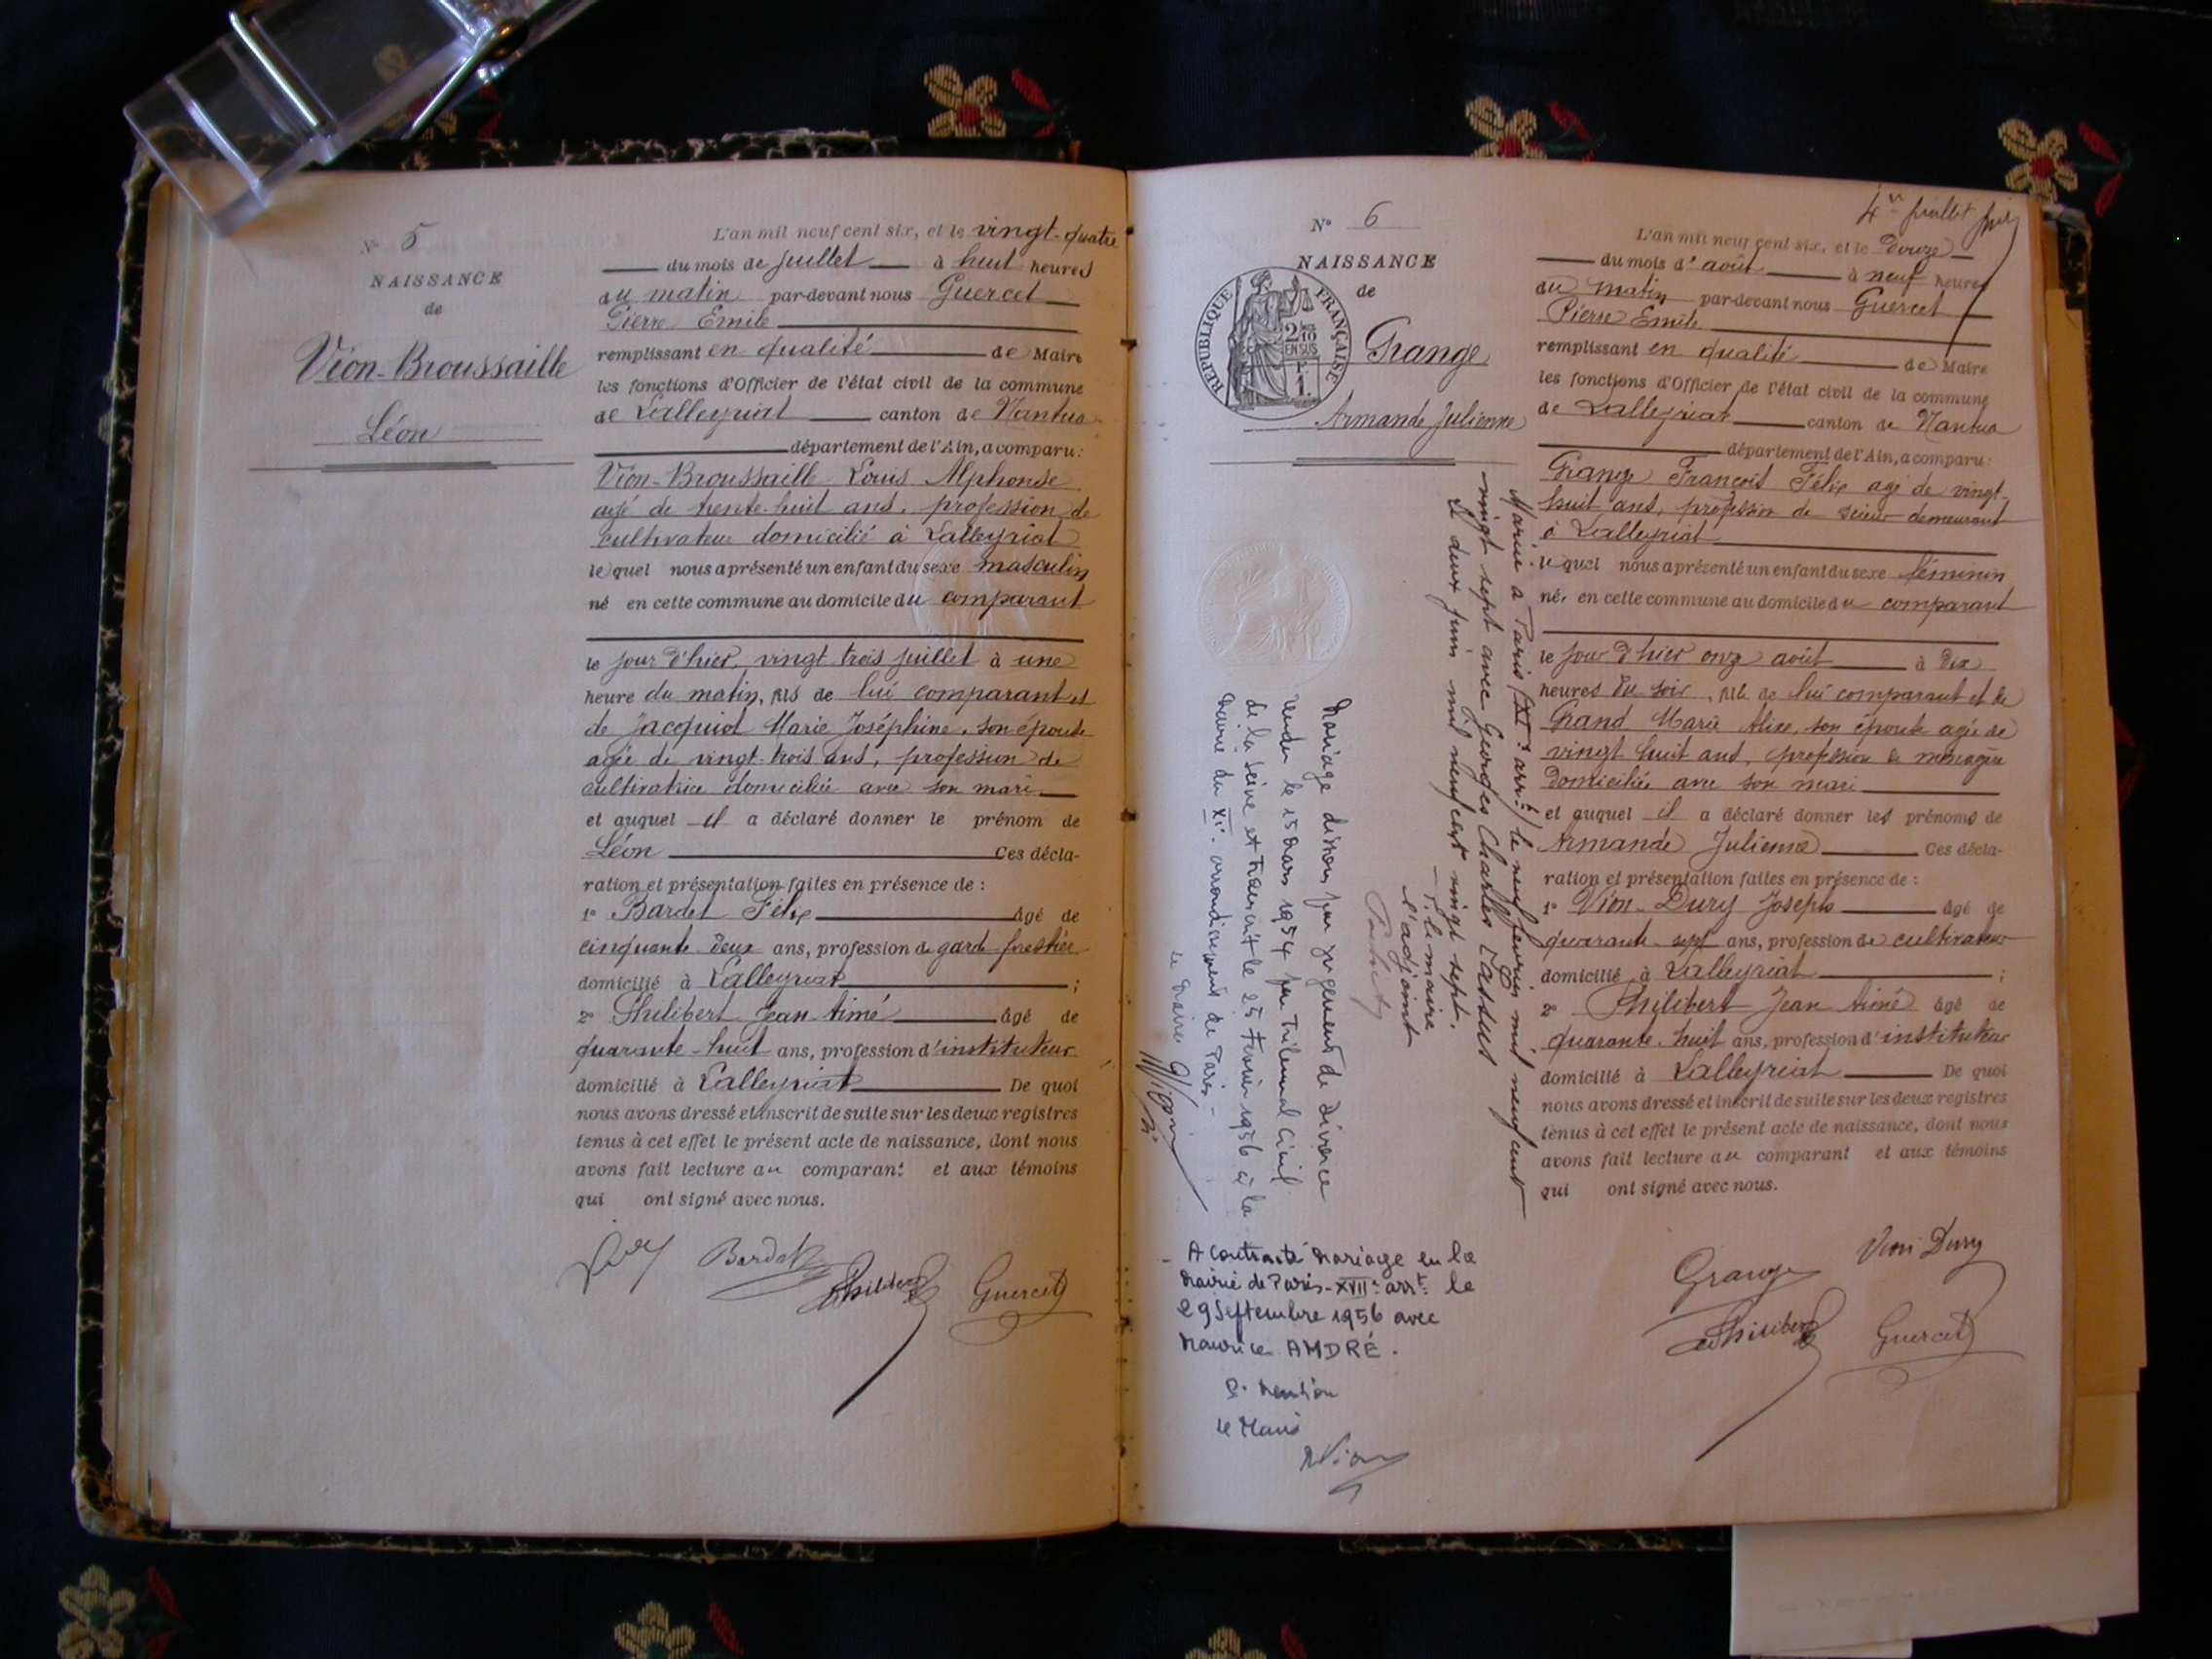 N° 5
NAISSANCE
de
Vion-Broussaille
Léon
L'an mil neuf cent six, et le vingt-quatre
du mois de juillet à huit heures
du matin par-devant nous Guercet
Pierre Emile
remplissant en qualité de Maire
les fonctions d'Officier de l'état civil de la commune
de Lalleyriat canton de Nantua
département de l'Ain, a comparu :
Vion-Broussaille Louis Alphonse
agé de trente-huit ans, profession de
cultivateur domicilié à Lalleyriat
lequel nous a présenté un enfant du sexe masculin
né en cette commune au domicile du comparant
le jour d'hier, vingt trois juillet à une
heure du matin, fils de lui comparant et
de Jacquiot Marie Joséphine, son épouse
agée de vingt-trois ans, profession de
cultivatrice domiciliée avec son mari
et auquel il a déclaré donner le prénom de
Léon Ces décla-
ration et présentation faites en présence de :
1° Bardet Félix âgé de
cinquante deux ans, profession de garde forestier
domicilié à Lalleyriat ;
2° Philibert Jean Aimé âgé de
quarante-huit ans, profession d'instituteur
domicilié à Lalleyriat De quoi
nous avons dressé et inscrit de suite sur les deux registres
tenus à cet effet le présent acte de naissance, dont nous
avons fait lecture au comparant et aux témoins
qui ont signé avec nous.
Bardet
Philibert Guercet
4e juillet
N° 6
NAISSANCE
de
REPUBLIQUE FRANÇAISE
2/10 EN SUS
1 F.
Grange
Armande Julienne
L'an mil neuf cent six, et le douze
du mois d'août à neuf heures
du matin par-devant nous Guercet
Pierre Emile
remplissant en qualité de Maire
les fonctions d'Officier de l'état civil de la commune
de Lalleyriat canton de Nantua
département de l'Ain, a comparu :
Grange François Félix agé de vingt-
huit ans, profession de scieur demeurant
à Lalleyriat
lequel nous a présenté un enfant du sexe féminin
née en cette commune au domicile du comparant
le jour d'hier onze août à dix
heures du soir, fille de lui comparant et de
Grand Marie Alise, son épouse agée de
vingt huit ans, profession de ménagère
domiciliée avec son mari
et auquel il a déclaré donner les prénoms de
Armande Julienne Ces décla-
ration et présentation faites en présence de :
1° Vion-Dury Joseph âgé de
quarante-sept ans, profession de cultivateur
domicilié à Lalleyriat ;
2° Philibert Jean Aimé âgé de
quarante-huit ans, profession d'instituteur
domicilié à Lalleyriat De quoi
nous avons dressé et inscrit de suite sur les deux registres
tenus à cet effet le présent acte de naissance, dont nous
avons fait lecture au comparant et aux témoins
qui ont signé avec nous.
Grange Vion Dury
Philibert Guercet
Mariée à Paris (XIe arrt) le neuf février mil neuf cent
vingt sept avec Georges Charles Cassus
Le deux juin mil neuf cent vingt sept.
P. le maire
l'adjoint
Mariage dissous par jugement de divorce
rendu le 15 mars 1954 par Tribunal Civil
de la Seine et transcrit le 25 février 1956 à la
mairie du XIe arrondissement de Paris -
Le Maire
- A contracté mariage en la
mairie de Paris - XVIIe arrt le
29 Septembre 1956 avec
Maurice ANDRÉ.
Pr mention
Le Maire